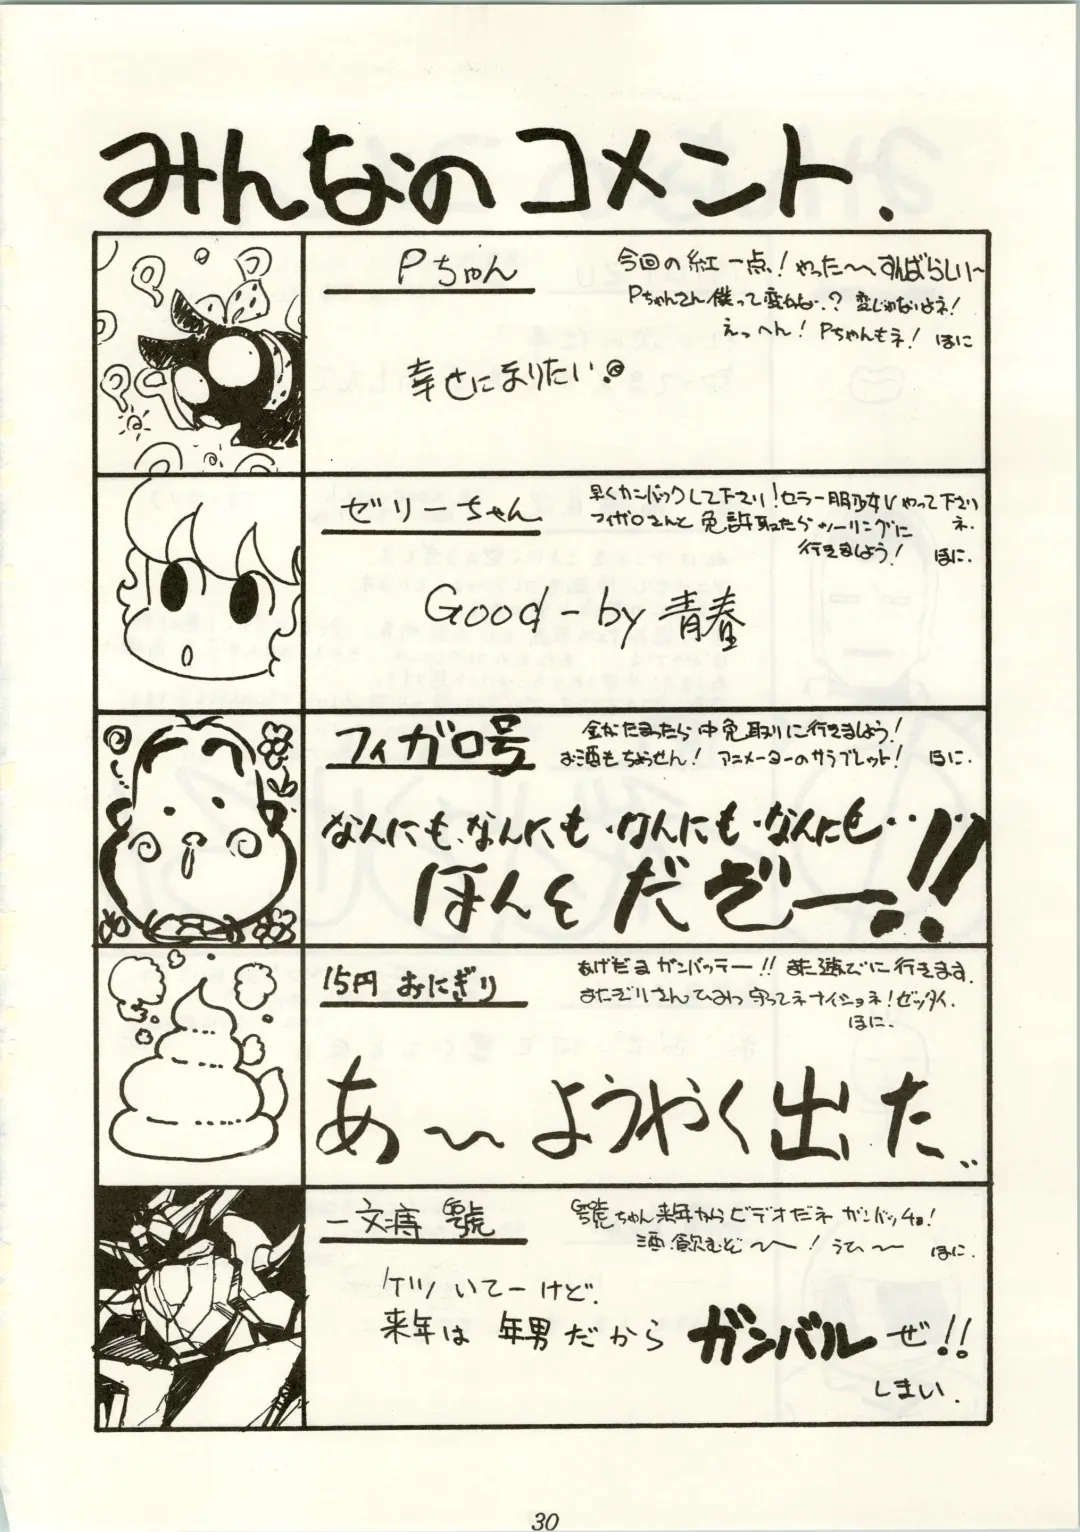 みんなのコメント.
Pちゃん
今回の紅一点!やった〜、すんばらしい〜
Pちゃんさん僕って変かな.?変じゃないよネ!
えっへん!Pちゃんもネ!ほに
幸せになりたい。
ゼリーちゃん
早くカンバックして下さい!セラー服少女Vやって下さい
ネ.
フィガロさんと免許取ったらツーリングに
行きましょう!ほに.
Good-by青春
フィガロ号
金がたまったら中免取りに行きましょう!
お酒もちょうせん!アニメーターのサラブレット!ほに.
なんにも、なんにも・なんにも・なんにも・・・・
ほんそだぞー.!!
15円おにぎり
あげだまガンバッテー!!また遊びに行きます.
またぞりさんひみつ守ってネナイショネ!ゼッタイ.
ほに.
あ〜〜ようやく出た..
一文痔 號
號ちゃん来年からビデオだネガンバッチョ!
酒.飲むぞ〜〜!うひ〜〜ほに.
ケツいてーけど.
来年は年男だからガンバルぜ!!
しまい.
30